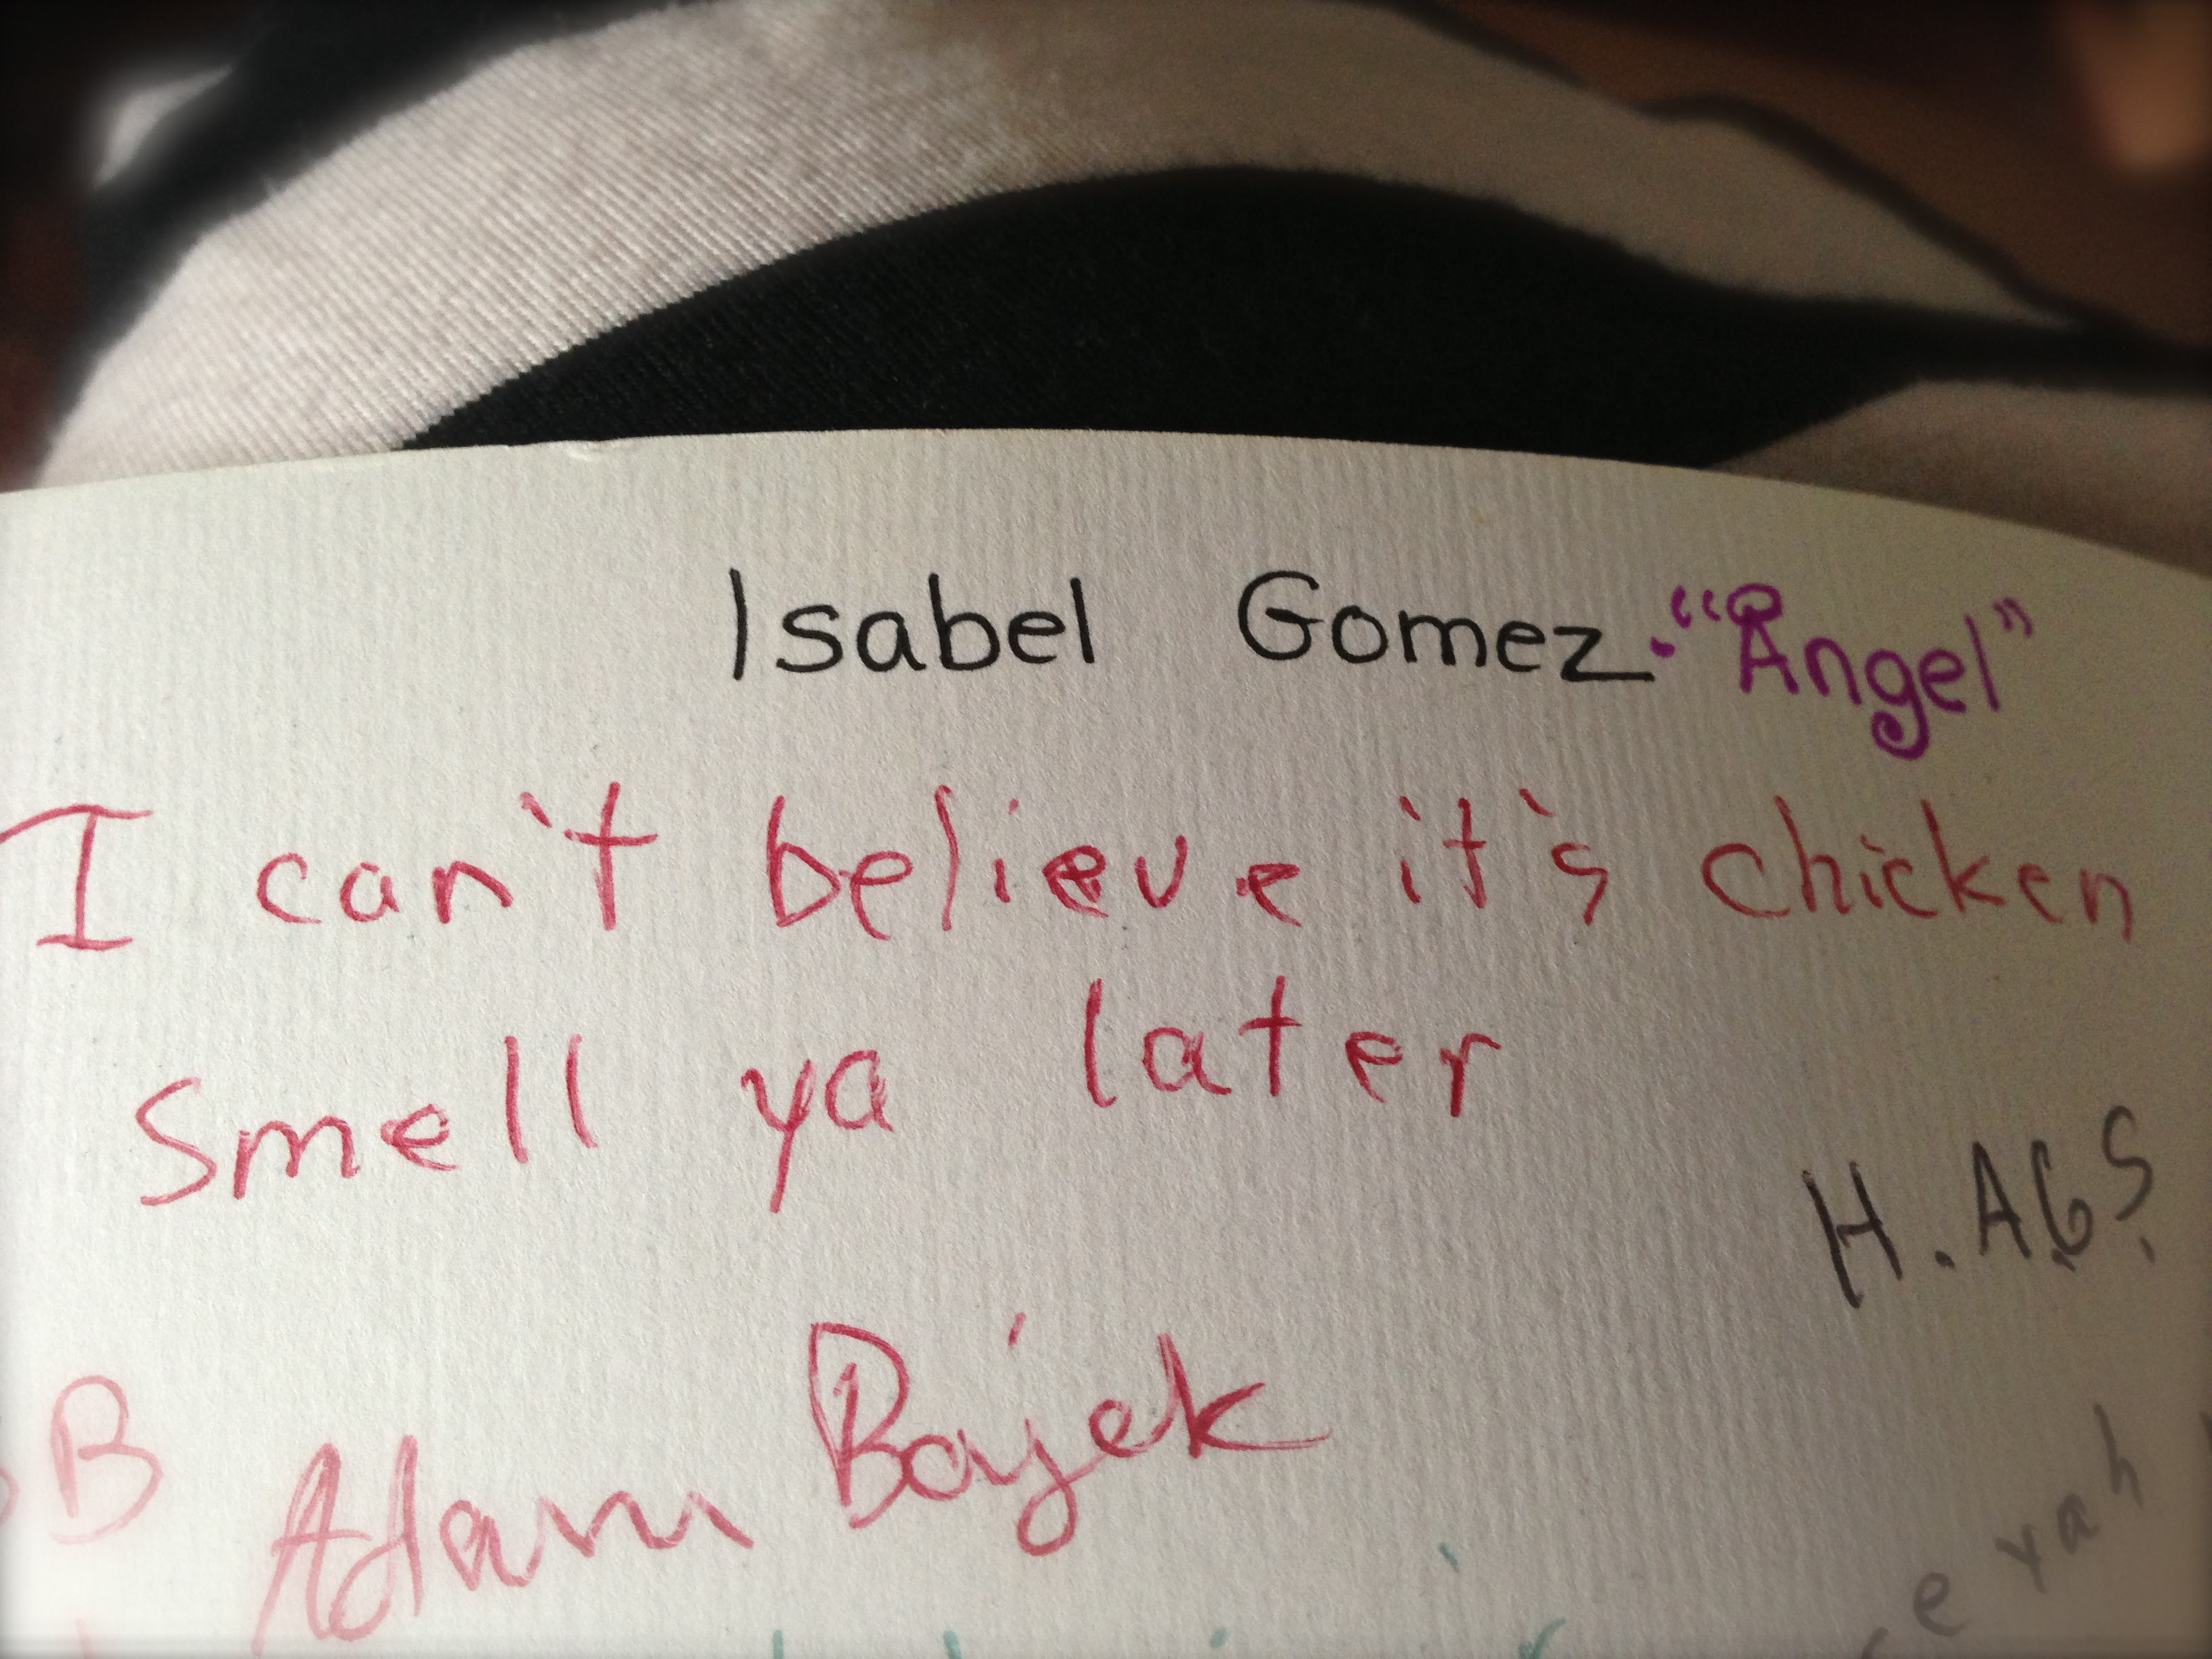 Isabel Gomez. "Angel"
I can't believe it's chicken
Smell ya later
H.A.G.S.
B
Adam Bajek
yah